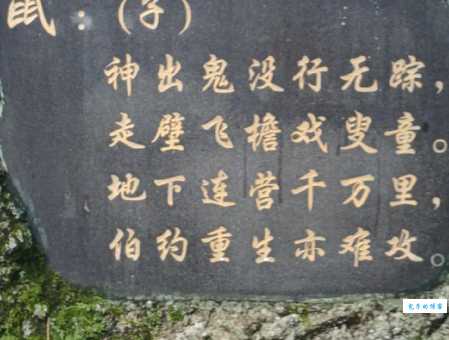 鼠：(子)
神出鬼没行无踪，
走壁飞檐戏叟童。
地下连营千万里，
伯约重生亦难攻。